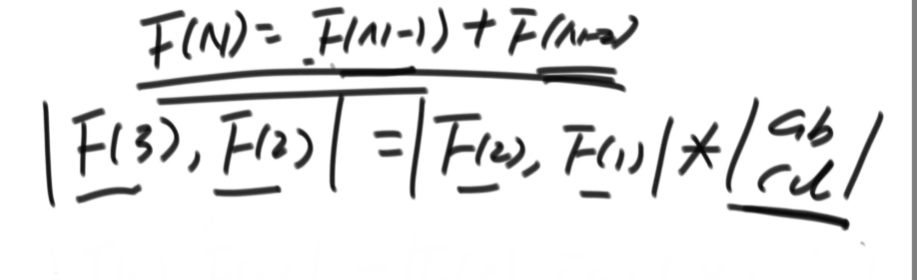 F(N) = F(N-1) + F(N-2)
|F(3), F(2)| = |F(2), F(1)| * |ab
cd|